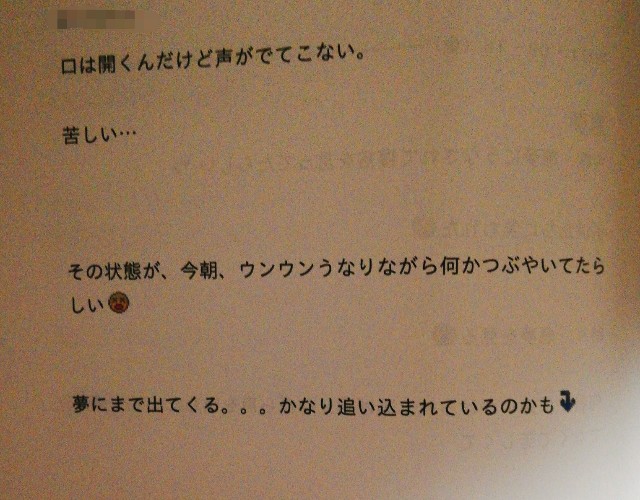 口は開くんだけど声がでてこない。
苦しい…
その状態が、今朝、ウンウンうなりながら何かつぶやいてたら
しい
夢にまで出てくる。。。かなり追い込まれているのかも